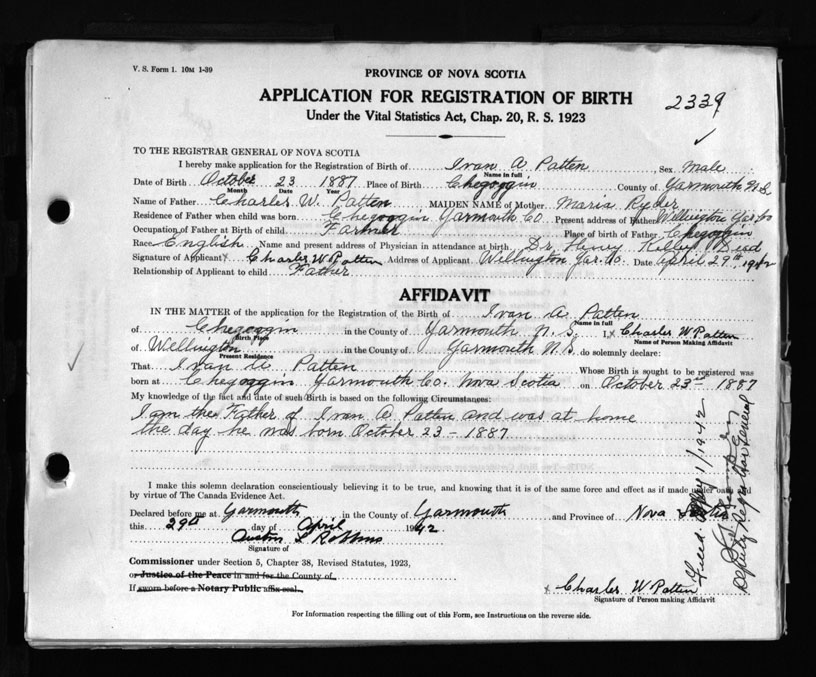 V. S. Form 1. 10M 1-39
PROVINCE OF NOVA SCOTIA
APPLICATION FOR REGISTRATION OF BIRTH
2339
Under the Vital Statistics Act, Chap. 20, R. S. 1923
TO THE REGISTRAR GENERAL OF NOVA SCOTIA
I hereby make application for the Registration of Birth of Ivan A Patten Sex Male
Name in full
Date of Birth October 23 1887 Place of Birth Chegoggin County of Yarmouth N.S.
Month Date Year
Name of Father Charles W. Patten MAIDEN NAME of Mother Maria Ryder
Residence of Father when child was born Chegoggin Yarmouth Co Present address of Father Wellington Yar Co
Occupation of Father at Birth of child Farmer Place of birth of Father Chegoggin
Race English Name and present address of Physician in attendance at birth Dr. Henry Kelley Dead
Signature of Applicant x Charles W Patten Address of Applicant Wellington Yar. Co. Date April 29th, 1942
Relationship of Applicant to child Father
AFFIDAVIT
IN THE MATTER of the application for the Registration of the Birth of Ivan A. Patten
Name in full
of Chegoggin in the County of Yarmouth N.S. I, x Charles W Patten
Birth Place Name of Person Making Affidavit
of Wellington in the County of Yarmouth N.S. do solemnly declare:
Present Residence
That Ivan A Patten Whose Birth is sought to be registered was
born at Chegoggin Yarmouth Co. Nova Scotia on October 23rd 1887
My knowledge of the fact and date of such Birth is based on the following Circumstances:
I am the Father of Ivan A. Patten and was at home
the day he was born October 23 - 1887
I make this solemn declaration conscientiously believing it to be true, and knowing that it is of the same force and effect as if made under oath and
by virtue of The Canada Evidence Act.
Declared before me at Yarmouth in the County of Yarmouth and Province of Nova Scotia
this 29th day of April 1942
Austin L Robbins
Signature of
Commissioner under Section 5, Chapter 38, Revised Statutes, 1923,
or Justice of the Peace in and for the County of
If sworn before a Notary Public affix seal.
x Charles W Patten
Signature of Person making Affidavit
For Information respecting the filling out of this Form, see Instructions on the reverse side.
Filed May 1/1942
Deputy Registrar General